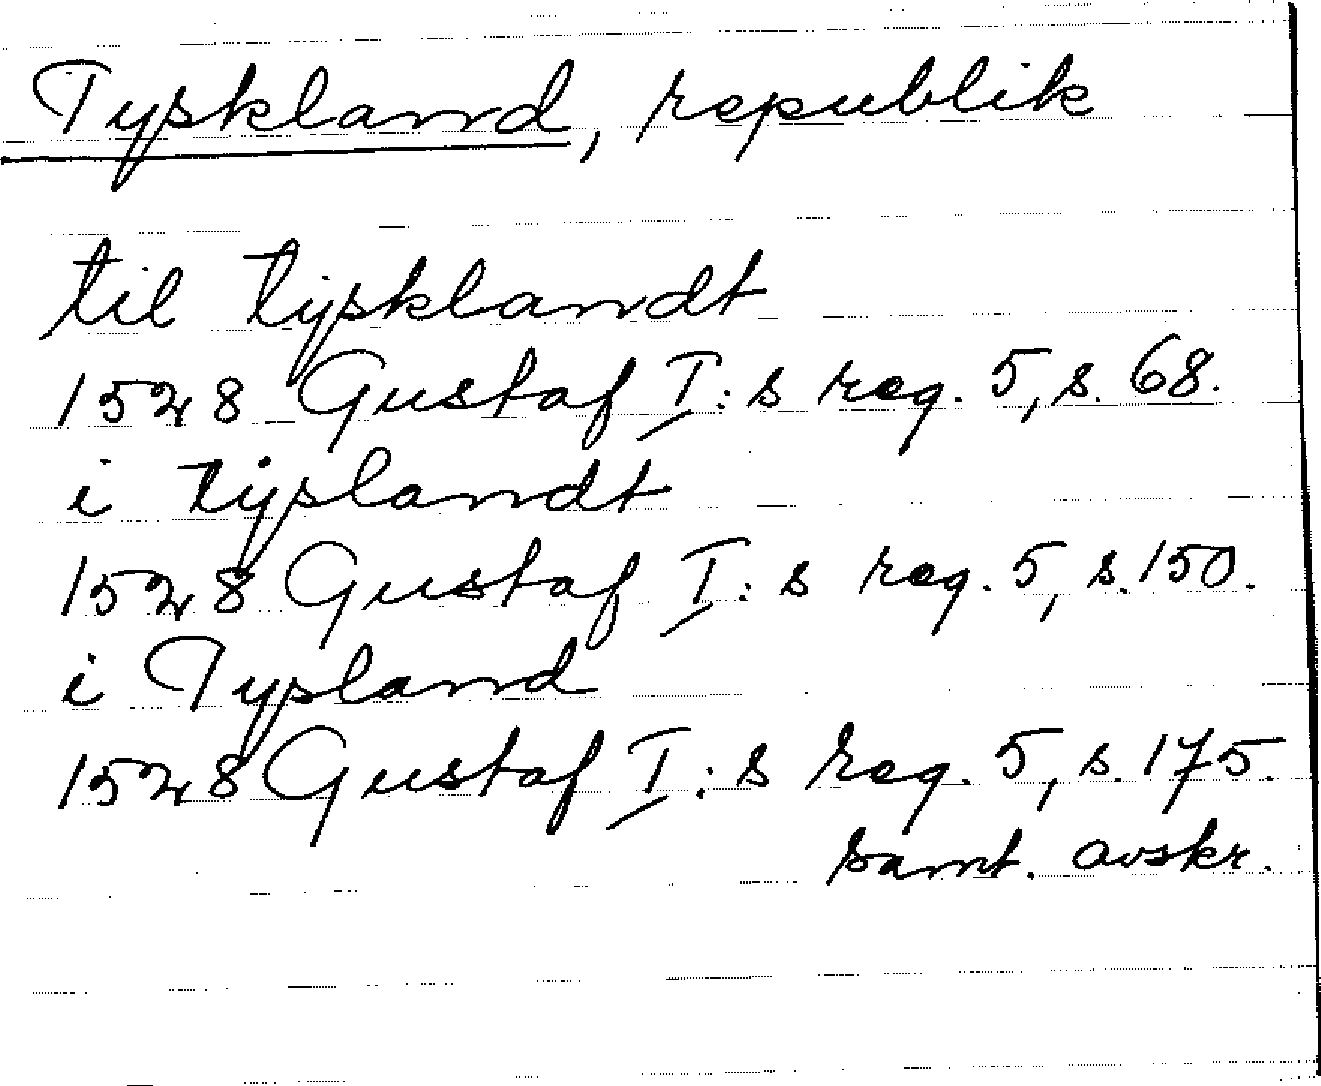 Tyskland, republik
til tysklandt
1528 Gustaf I:s reg. 5, s. 68.
i tyslandt
1528 Gustaf I:s reg. 5, s. 150.
i Tysland
1528 Gustaf I:s reg. 5, s. 175.
samt. avskr.